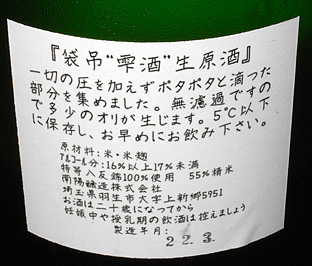 『袋吊“雫酒”生原酒』
一切の圧を加えずポタポタと滴った
部分を集めました。無濾過ですの
で多少のオリが生じます。5℃以下
に保存し、お早めにお飲み下さい。
原材料:米・米麹
アルコール分:16%以上17%未満
特等八反錦100%使用 55%精米
南陽醸造株式会社
埼玉県羽生市大字上新郷5951
お酒は二十歳になってから
妊娠中や授乳期の飲酒は控えましょう
製造年月:
22.3.